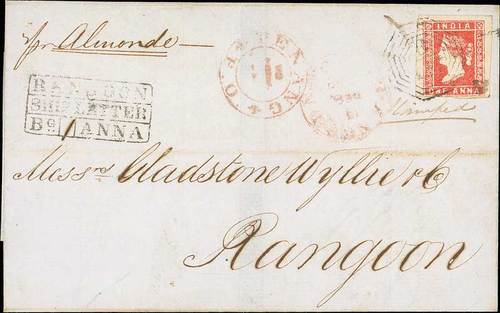 pr Almonde
RANGOON
SHIP LETTER
Bg 1 ANNA
G.P.O. PENANG
INDIA
ONE ANNA
Stamped
Messrs Gladstone Wyllie & Co
Rangoon